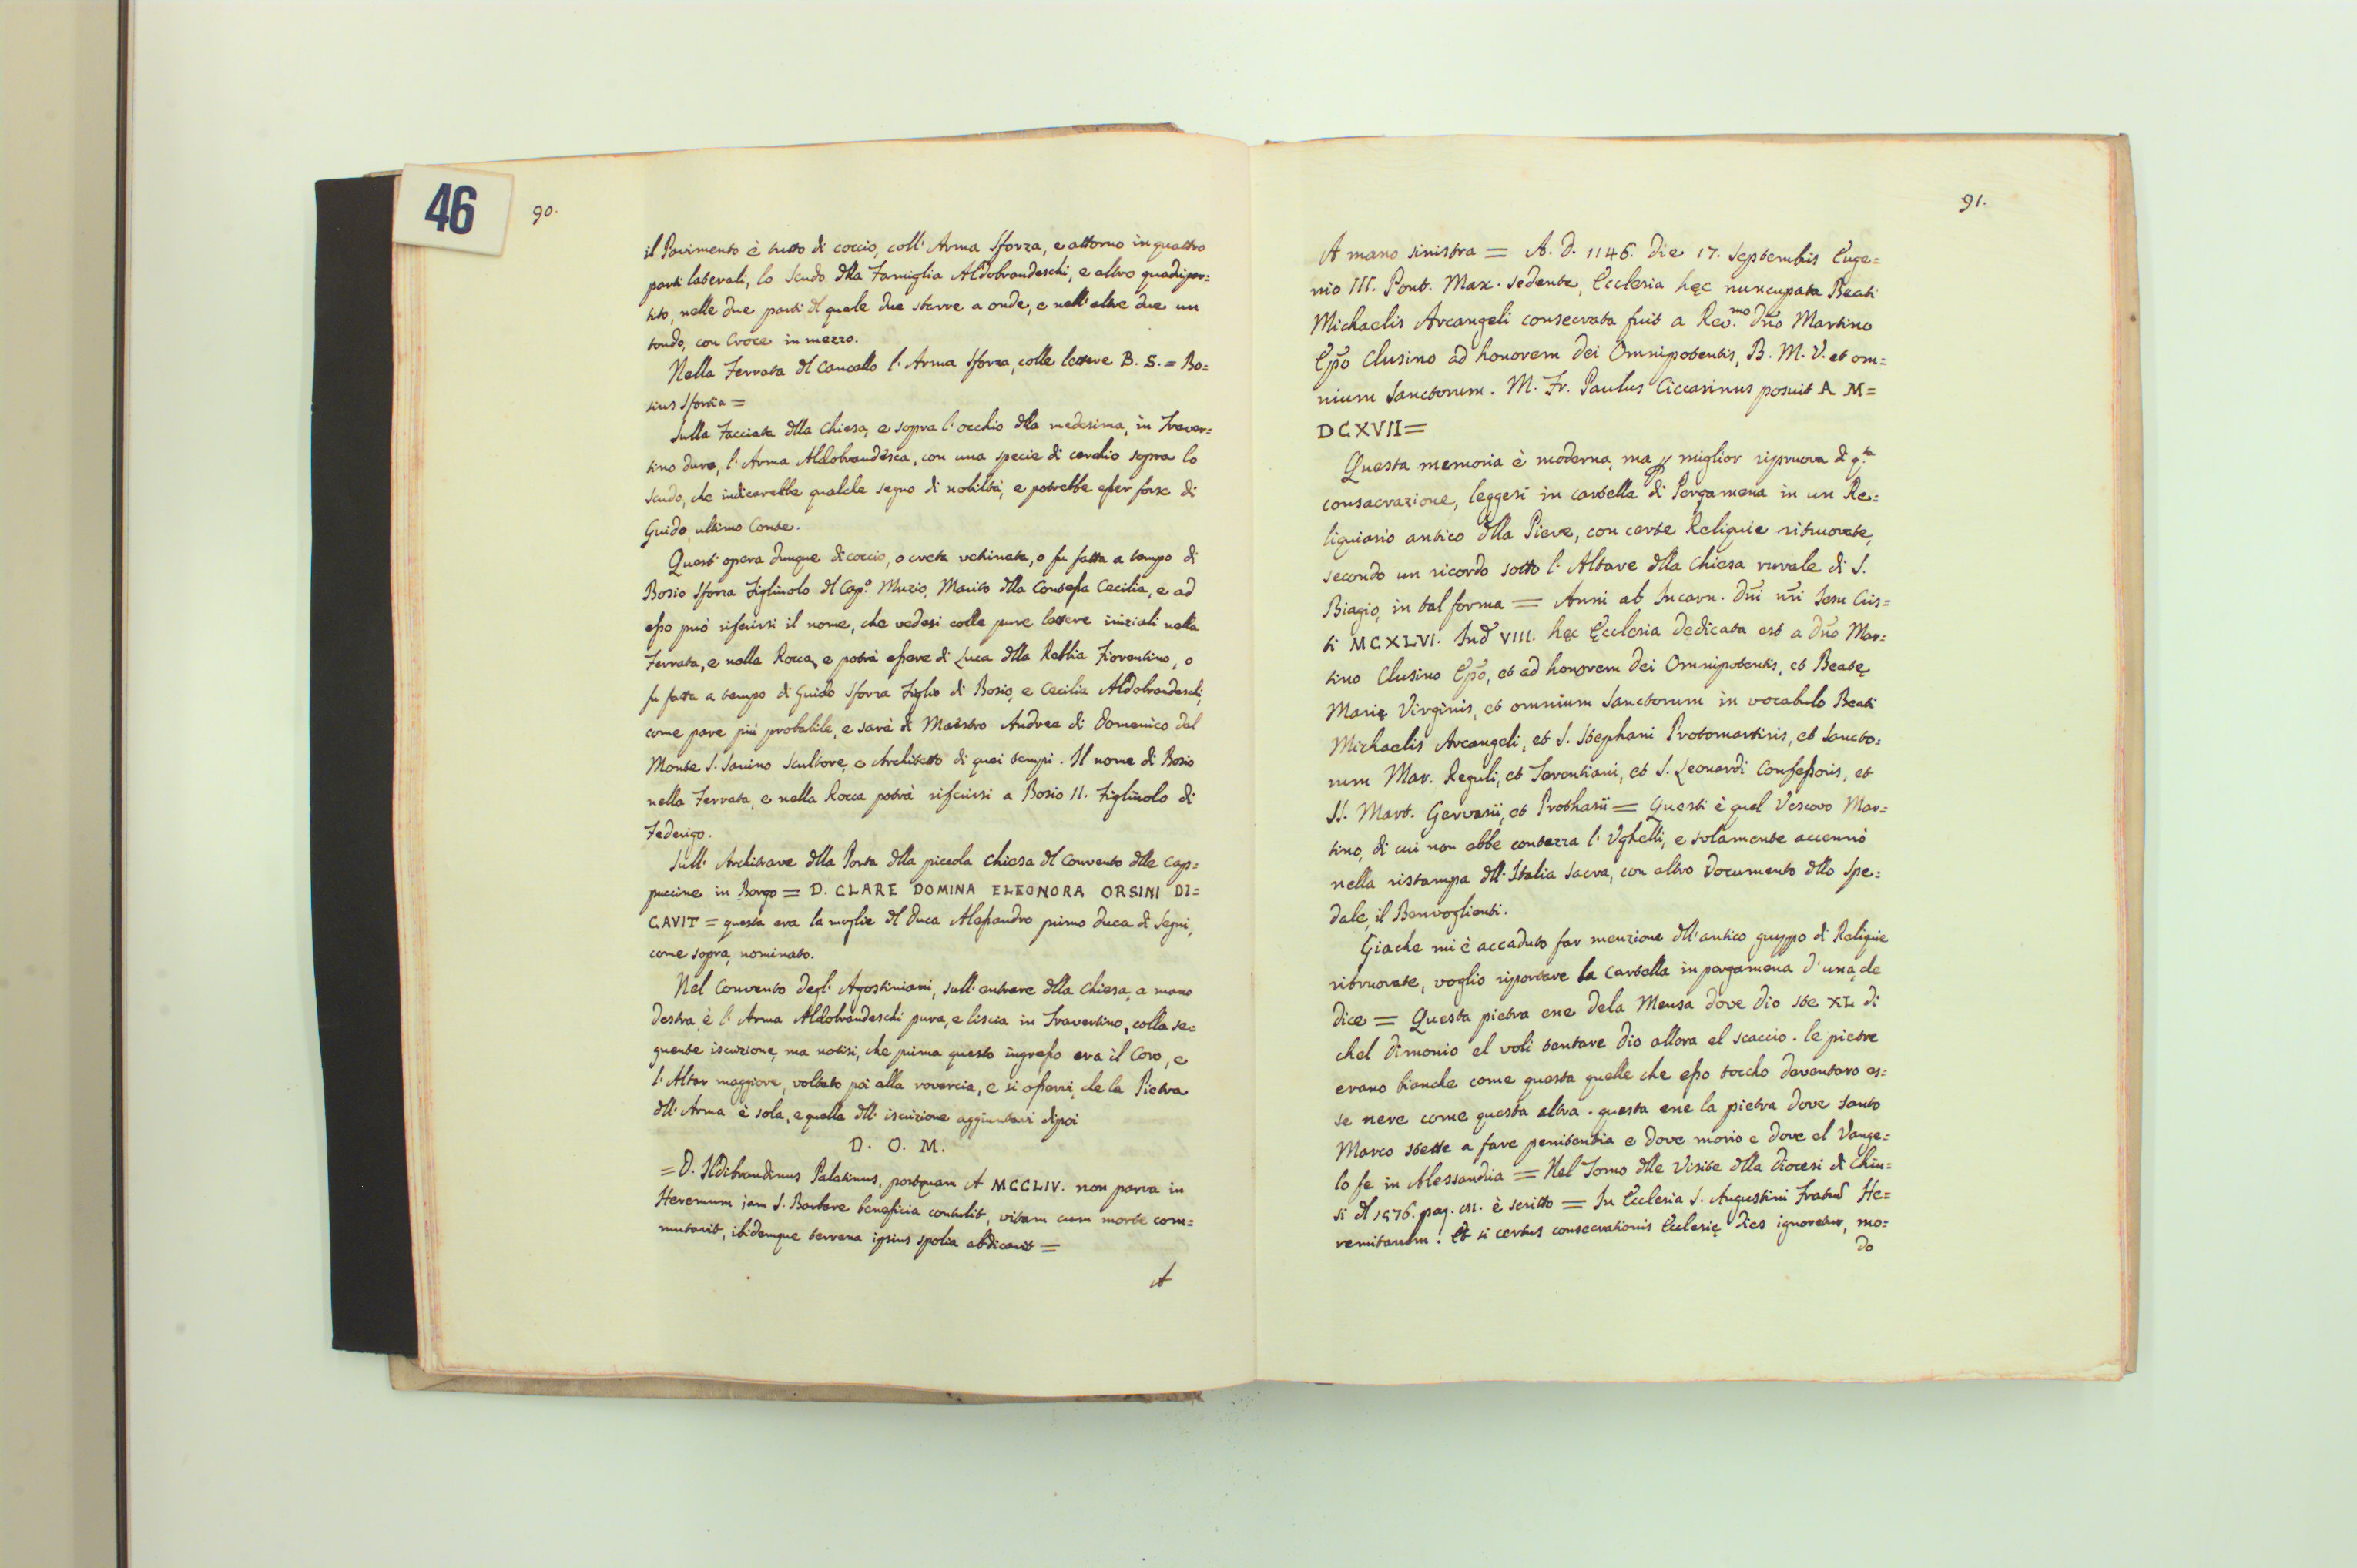 46
90.
il Pavimento è tutto di coccio, coll' Arma Sforza, e attorno in quattro
parti laterali, lo Scudo dlla Famiglia Aldobrandeschi, e altro quadripar=
tito, nelle due parti dl quale due sbarre a onde, e nell'altre due un
tondo, con Croce in mezzo.
Nella Ferrata dl Cancello l'Arma Sforza, colle lettere B. S. = Bo=
sius Sfortia =
Sulla Facciata dlla Chiesa, e sopra l'occhio dlla medesima, in Traver=
tino duro, l'Arma Aldobrandesca, con una specie di cerchio sopra lo
scudo, che indicarebbe qualche segno di nobiltà, e potrebbe esser forse di
Guido, ultimo Conte.
Quest' opera dunque di coccio, o creta vetrinata, o fu fatta a tempo di
Bosio Sforza Figliuolo dl Cap.º Muzio, Marito dlla Contessa Cecilia, e ad
esso può riferirsi il nome, che vedesi colle pure lettere iniziali nella
Ferrata, e nella Rocca, e potrà essere di Luca dlla Robbia Fiorentino, o
fu fatta a tempo di Guido Sforza Figlio di Bosio, e Cecilia Aldobrandeschi,
come pare più probabile, e sarà di Maestro Andrea di Domenico dal
Monte S. Savino Scultore, e Architetto di quei tempi. Il nome di Bosio
nella Ferrata, e nella Rocca potrà riferirsi a Bosio II. Figliuolo di
Federigo.
Sull' Architrave dlla Porta dlla piccola Chiesa dl Convento dlle Cap=
puccine in Borgo = D. CLARE DOMINA ELEONORA ORSINI DI=
CAVIT = questa era la moglie dl Duca Alessandro primo Duca di Segni,
come sopra, nominato.
Nel Convento degl' Agostiniani, sull'entrare dlla Chiesa, a mano
destra, è l'Arma Aldobrandeschi pura, e liscia in Travertino, colla se=
guente iscrizione, ma notisi, che prima questo ingresso era il Coro, e
l'Altar maggiore, voltato poi alla rovercia, e si osservi, che la Pietra
dll'Arma è sola, e quella dll'iscrizione aggiuntavi dipoi
D. O. M.
= D. Ildibrandinus Palatinus, postquam A MCCLIV. non parva in
Heremum jam S. Barbare beneficia contulit, vitam cum morte com=
mutavit, ibidemque terrena ipsius spolia abdicavit =
A
91.
A mano sinistra = A. D. 1146. Die 17. Septembris Euge=
nio III. Pont. Max. sedente, Ecclesia hęc nuncupata Beati
Michaelis Arcangeli consecrata fuit a Rev.mo Dño Martino
Epõ Clusino ad honorem Dei Omnipotentis, B. M. V. et om=
nium Sanctorum. M. Fr. Paulus Ciccarinus posuit A M=
DCXVII =
Questa memoria è moderna, ma p miglior ripruova di q.ta
consacrazione, leggesi in cartella di Pergamena in un Re=
liquiario antico dlla Pieve, con certe Reliquie ritruovate,
secondo un ricordo sotto l'Altare dlla Chiesa rurale di S.
Biagio, in tal forma = Anni ab Incarn. Dñi ñri Jesu Cris=
ti MCXLVI. Ind VIII. hęc Ecclesia dedicata est a Dño Mar=
tino Clusino Epõ, et ad honorem Dei Omnipotentis, et Beatę
Marię Virginis, et omnium Sanctorum in vocabulo Beati
Michaelis Arcangeli, et S. Stephani Protomartiris, et Sancto=
rum Mar. Reguli, et Terentiani, et S. Leonardi Confessoris, et
SS. Mart. Gervasii, et Prothasii = Questi è quel Vescovo Mar=
tino, di cui non ebbe contezza l'Vghelli, e solamente accennò
nella ristampa dll'Italia Sacra, con altro documento dllo Spe=
dale, il Benvoglienti.
Giache mi è accaduto far menzione dll'antico gruppo di Reliquie
ritruovate, voglio riportare la Cartella in pergamena d'una, che
dice = Questa pietra ene dela Mensa dove Dio ste XL di
chel dimonio el voli tentare Dio allora el scaccio. le pietre
erano bianche come questa quelle che esso toccho deventaro es=
se nere come questa altra. questa ene la pietra dove Santo
Marco stette a fare penitentia e dove morio e dove el Vange=
lo fe in Alessandria = Nel Tomo dlle Visite dlla Diocesi di Chiu=
si dl 1576. pag. è scritto = In Ecclesia S. Augustini Fratrũ He=
remitarum. Et si certus consecrationis Ecclesię dies ignoretur, mo=
do